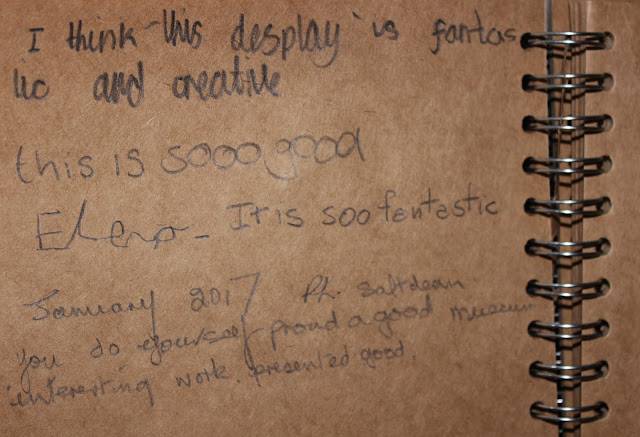 I think this desplay is fantas
lic and creative
this is sooo good
Elena - It is soo fentastic
January 2017 Ph. Saltdean
you do yourself proud a good museum
interesting work. presented good.